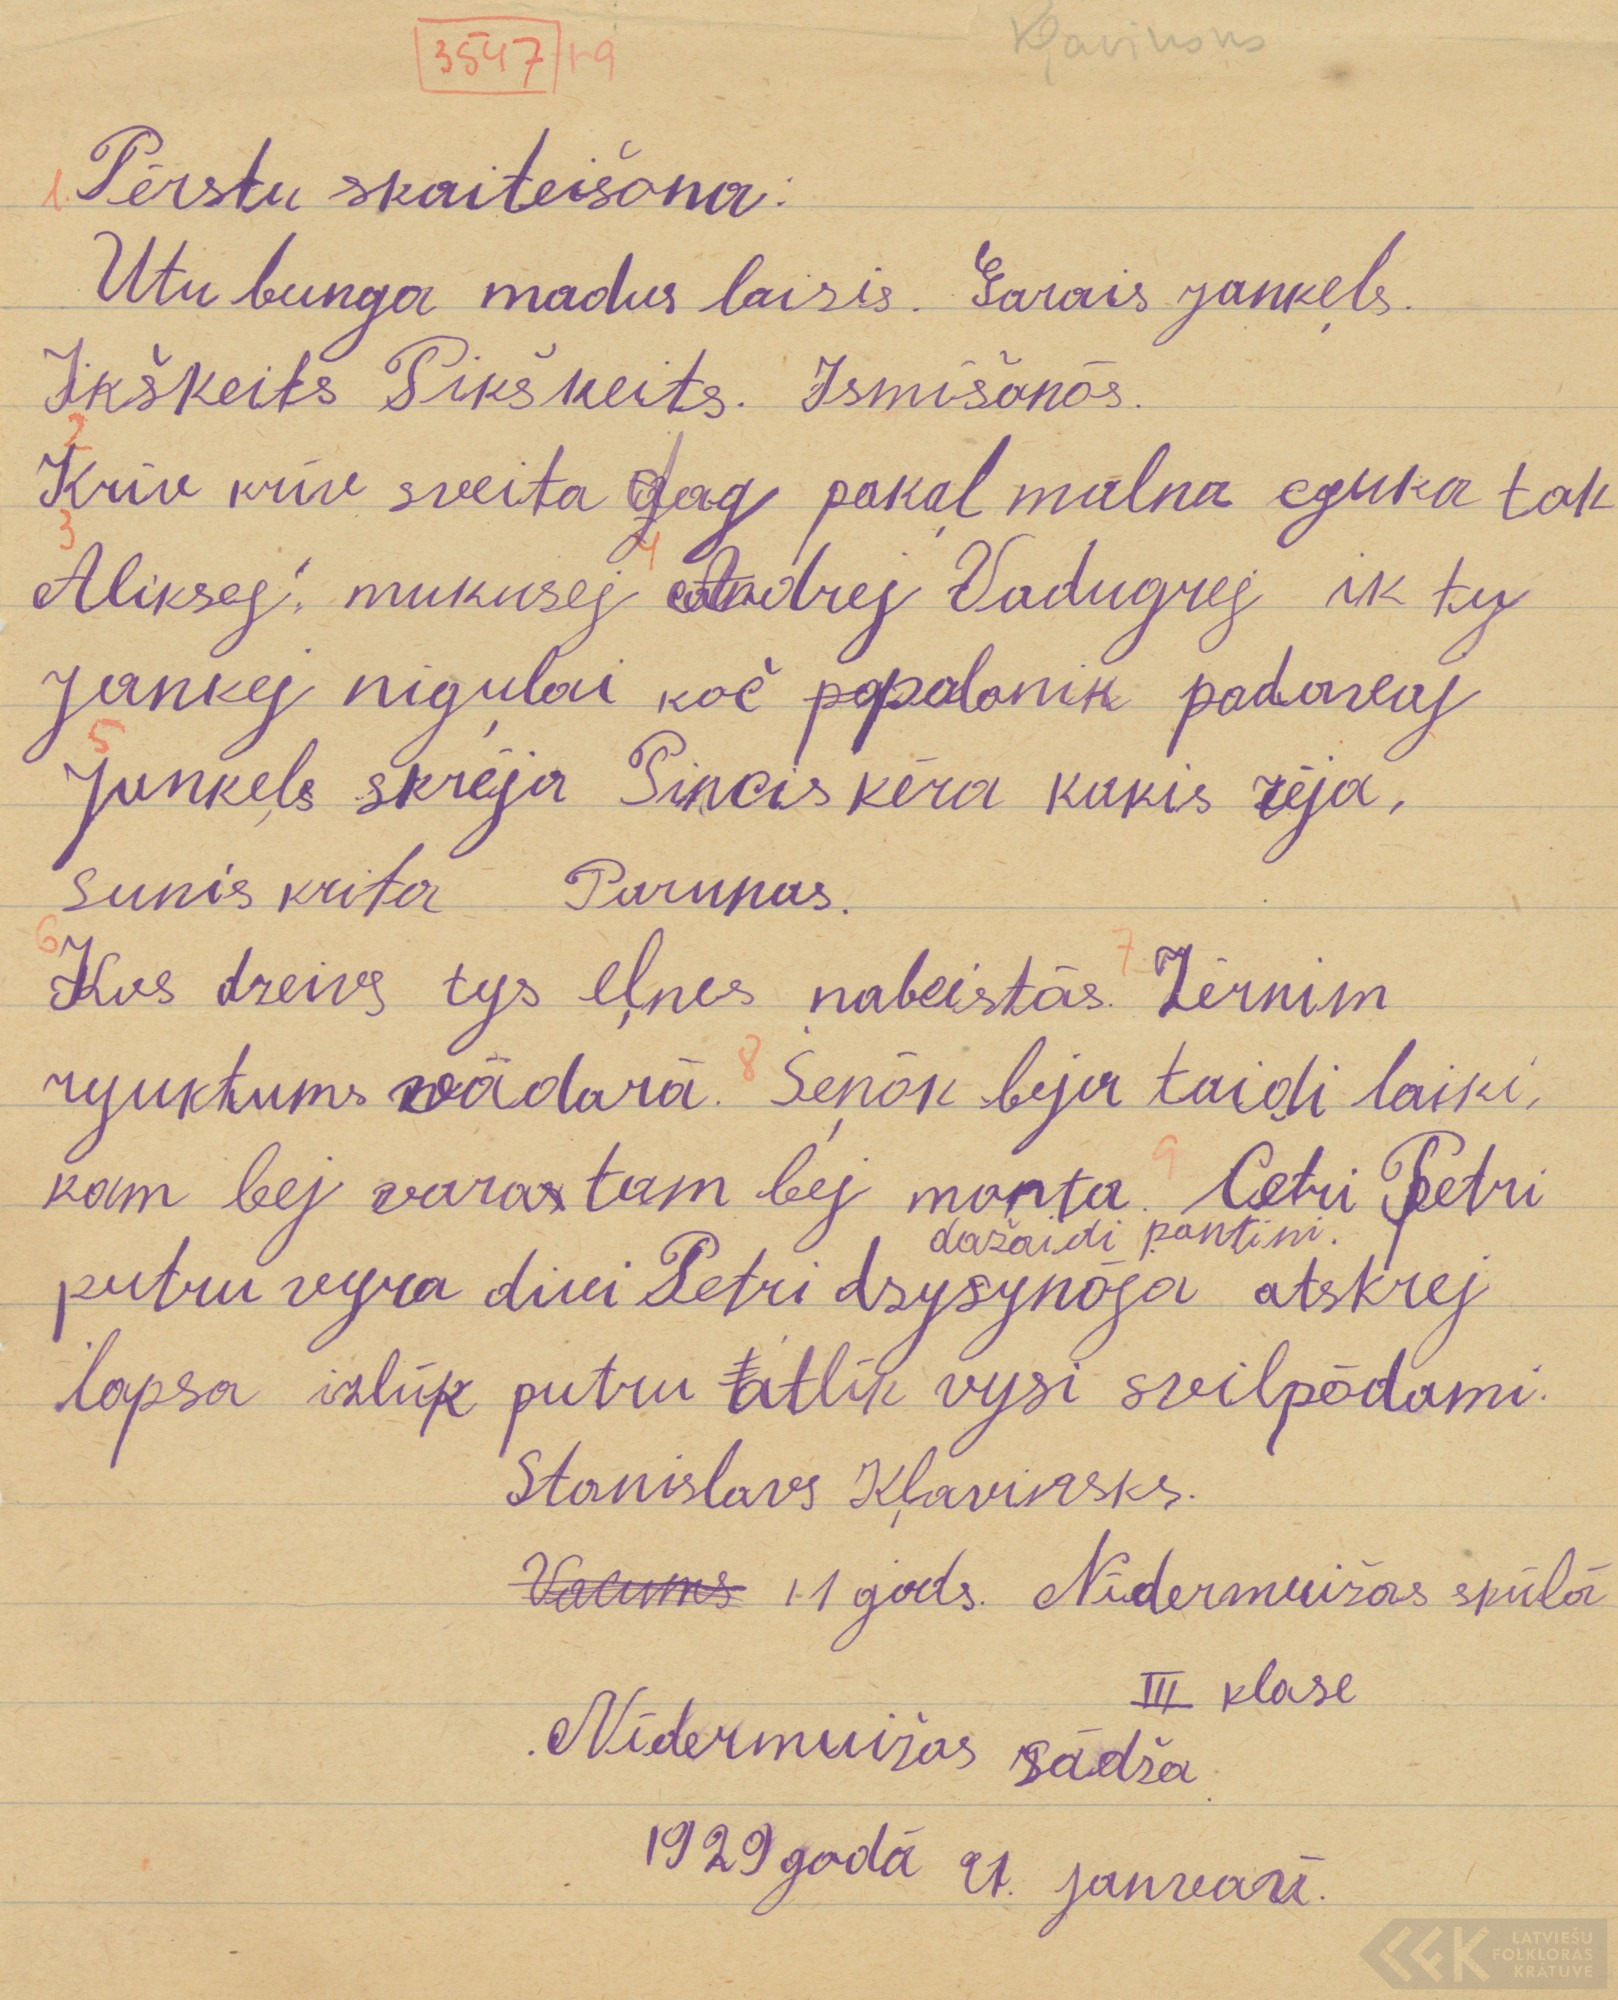 3547 1-9 Kļavinsks
1. Pērstu skaiteišona:
Utu bunga madus laizis. Garais jankeļs.
Ikškeits Pikškeits. Ismīšonōs.
2 Krīv krīv sveita gag pakaļ malna eguka tak
3 Aliksej! mukusej 4 Andrej Vadugrej ik ty
jankej niguļai koč papalonik padavaj
5 Jankeļs skrēja Pincis kēra kakis rēja,
sunis krita Parunas.
6 Kas dzeivs tys eļnes nabeistās. 7 Zērnim
ryuktums vādarā. 8 Seņōk beja taidi laiki,
kam bej varas tam bej monta. 9 Cetri Petri
dažaidi pantini.
putru vyra divi Petri dzysynōja atskrej
lapsa izlūk putru atlīk vysi svilpōdami.
Stanislavs Kļavinsks.
Vacums 11 gods. Nīdermuižas skūlā
III klase
Nīdermuižas sādža
1929 godā 21. janvarī.
LATVIEŠU
FOLKLORAS
KRĀTUVE